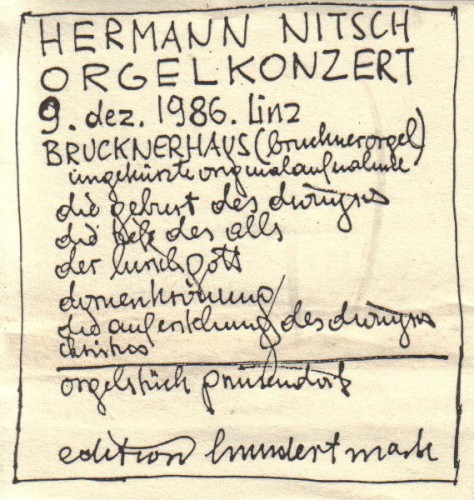 HERMANN NITSCH
ORGELKONZERT
9. dez. 1986. linz
BRUCKNERHAUS (brucknerorgel)
ungekürzte originalaufnahme
die geburt des dionysos
die tiefe des alls
der hirsch gott
dornenkrönung
die auferstehung des dionysos
christos
orgelstück prinzendorf
edition hundertmark